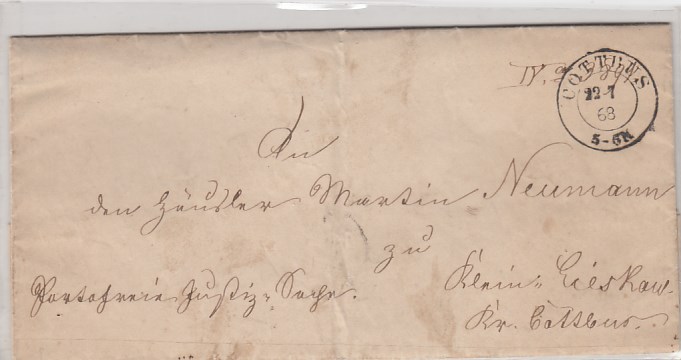 COTTBUS
22 7
68
5-6N
An
den Häusler Martin Neumann
zu
Klein-Lieskow
Portofreie Justiz-Sache.
Kr. Cottbus.